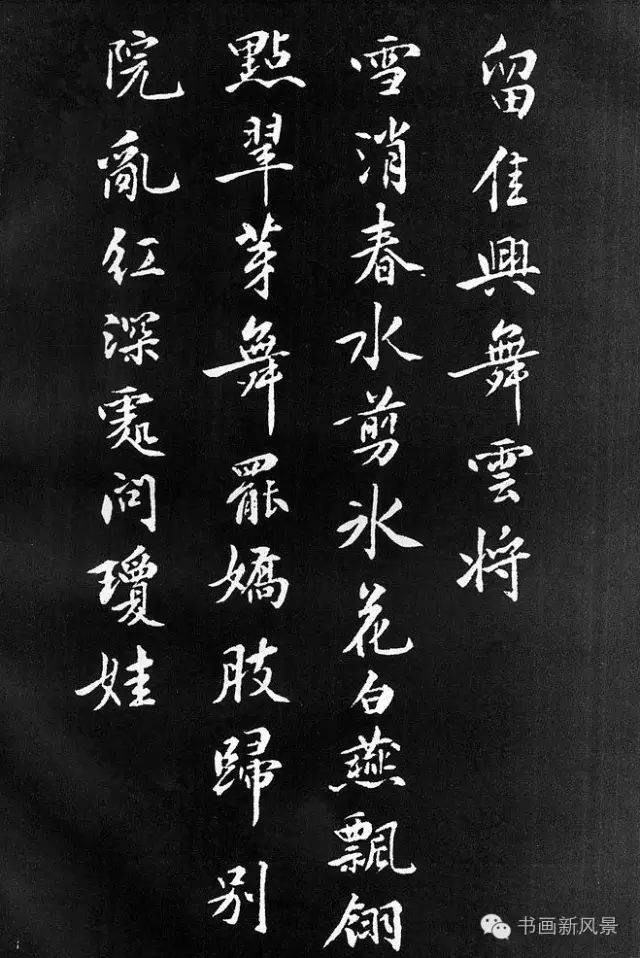 留佳興舞雲將
雪消春水剪冰花白燕飄翎
點翠芽舞罷嬌肢歸別
院亂紅深處問瓊娃
书画新风景